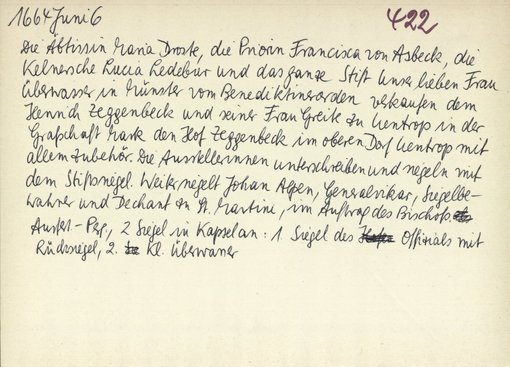 1664 Juni 6
422
Die Äbtissin Maria Droste, die Priorin Francisca von Asbeck, die
Kelnersche Lucia Ledebur und das ganze Stift Unser lieben Frau
Überwasser in Münster vom Benediktinerorden verkaufen dem
Henrich Zeggenbeck und seiner Frau Greite zu Uentrop in der
Grafschaft Mark den Hof Zeggenbeck im oberen Dorf Uentrop mit
allem Zubehör. Die Ausstellerinnen unterschreiben und siegeln mit
dem Stiftssiegel. Weiter siegelt Johan Alpen, Generalvikar, Siegelbe-
wahrer und Dechant zu St. Martini, im Auftrag des Bischofs.
Ausf.- Perg, 2 Siegel in Kapseln an: 1. Siegel des Offizials mit
Rücksiegel, 2. Kl. Überwasser